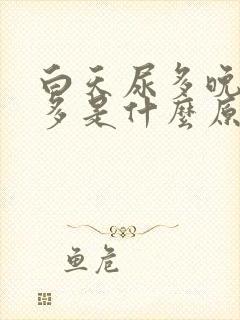 白天尿多晚
多是什麼原
鱼危